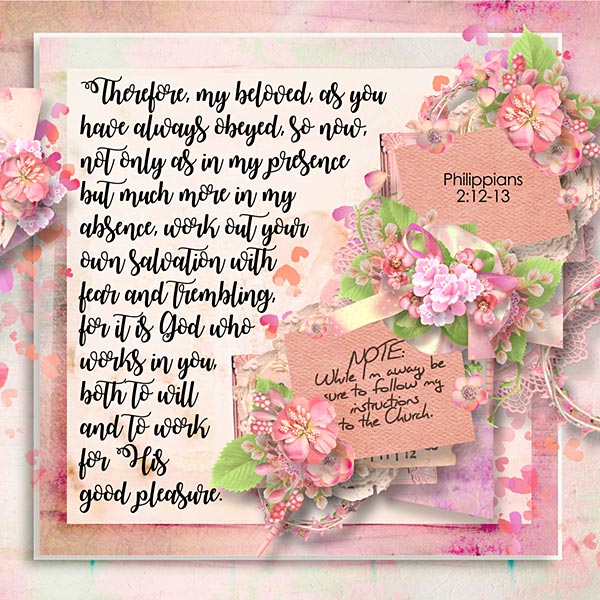 "Therefore, my beloved, as you
have always obeyed, so now,
not only as in my presence
but much more in my
absence, work out your
own salvation with
fear and trembling,
for it is God who
works in you,
both to will
and to work
for His
good pleasure.
Philippians
2:12-13
NOTE:
While I'm away be
sure to follow my
instructions
to the Church.